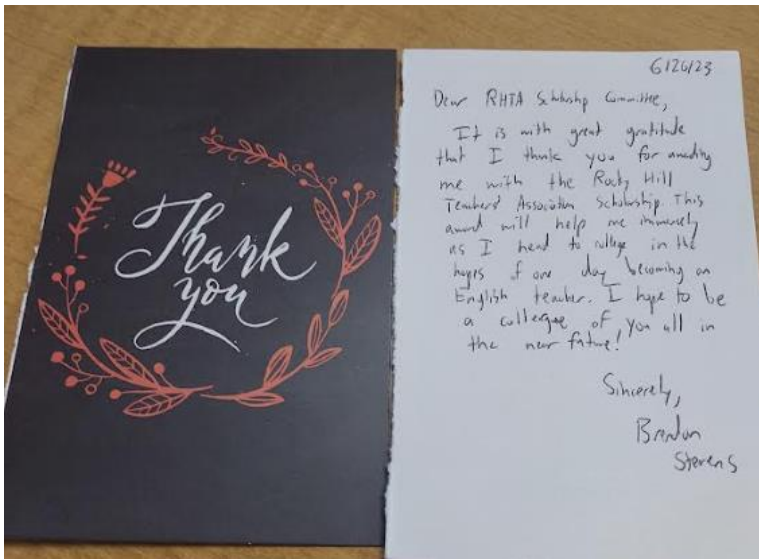 Thank
you
6/26/23
Dear RHTA Scholarship Committee,
It is with great gratitude
that I thank you for awarding
me with the Rocky Hill
Teachers' Association Scholarship. This
award will help me immensely
as I head to college in the
hopes of one day becoming an
English teacher. I hope to be
a colleague of you all in
the near future!
Sincerely,
Brendan
Stevens